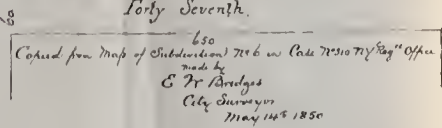 Forty Seventh.
650
Copied from Map of Subdivisions No 6 in Case No 310 NY Regrs Office
made by
E W Bridges
City Surveyor
May 14th 1850